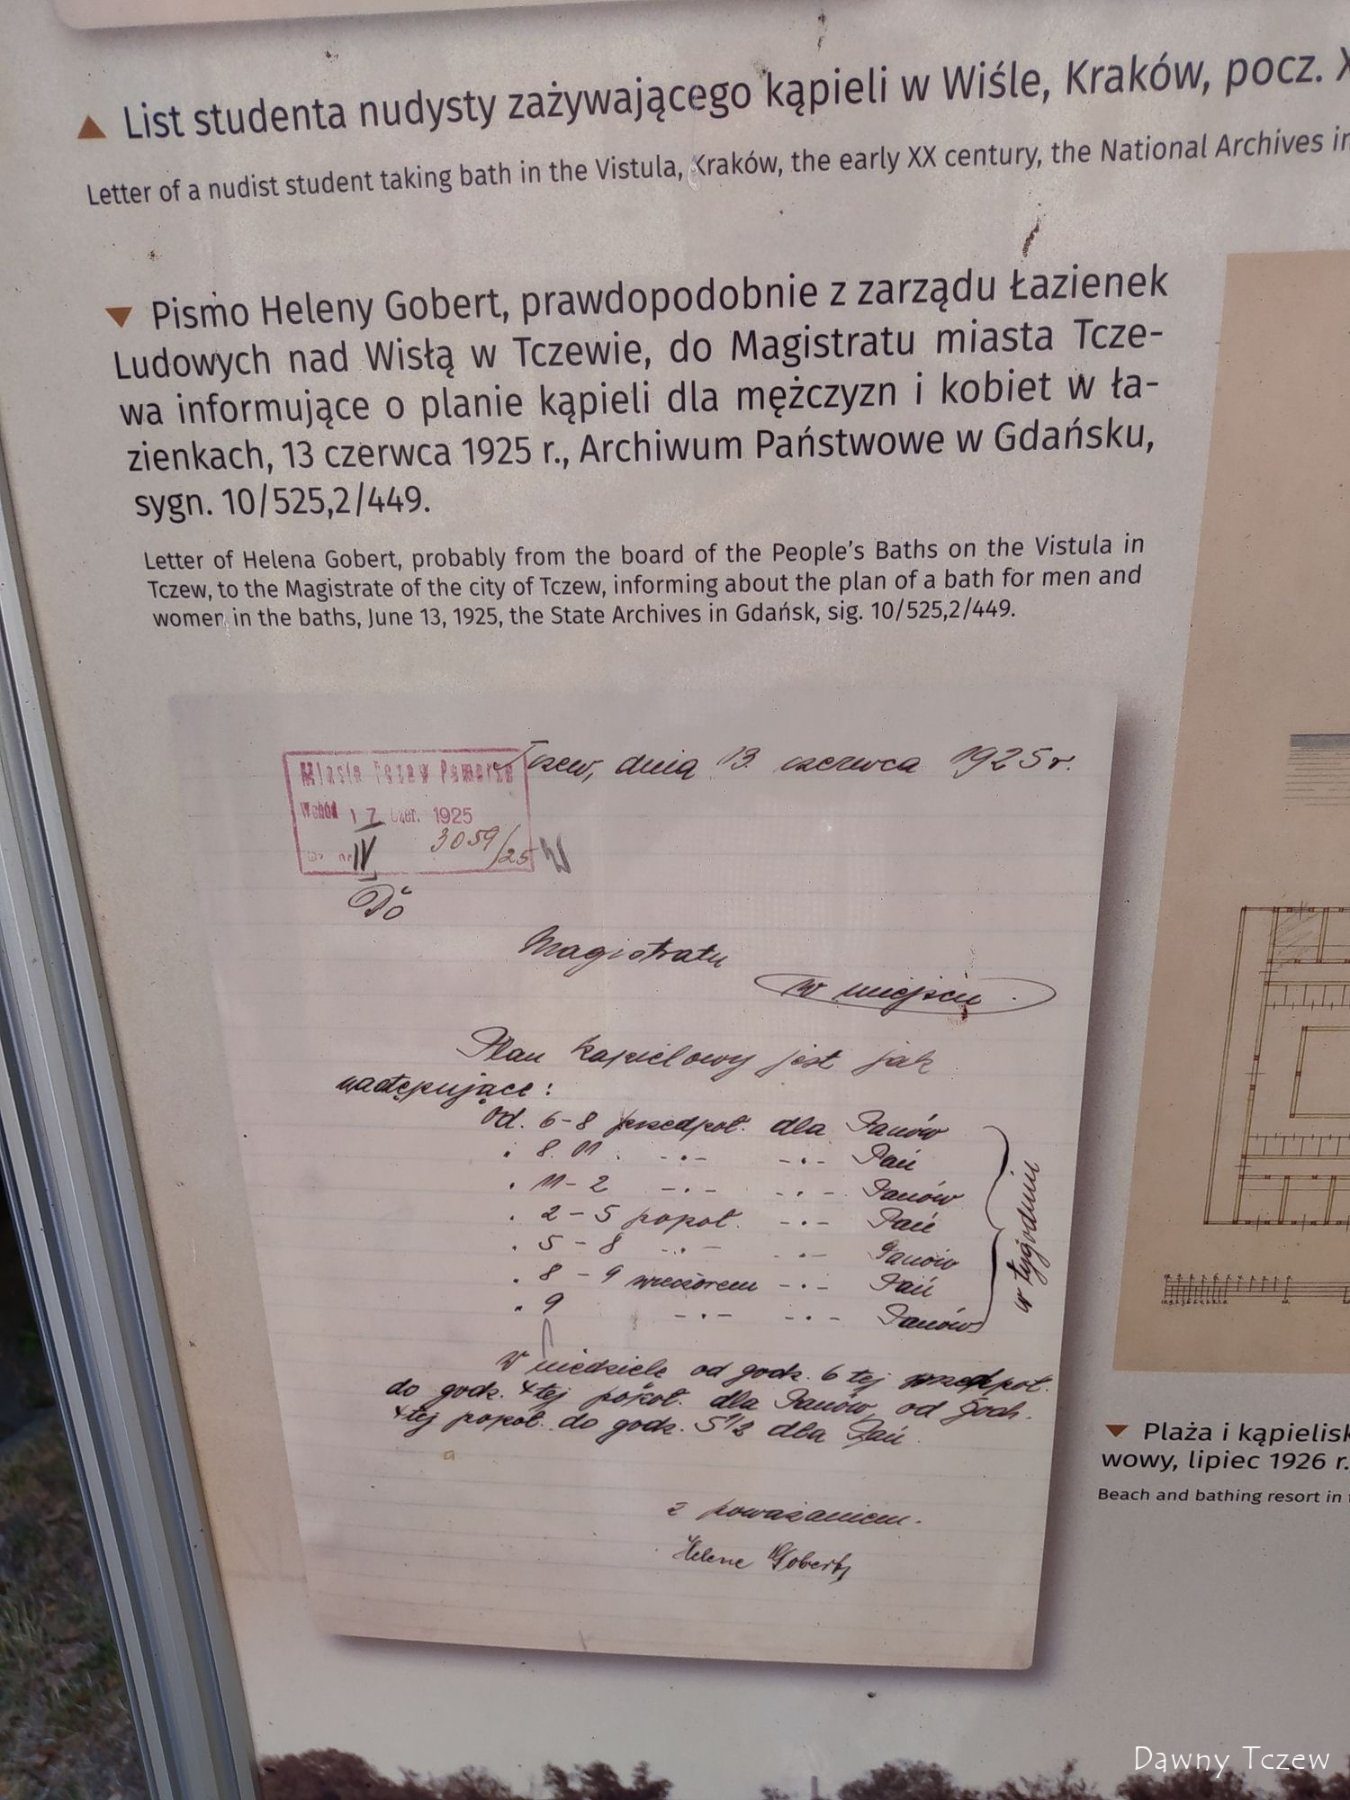 ▲ List studenta nudysty zażywającego kąpieli w Wiśle, Kraków, pocz. X
Letter of a nudist student taking bath in the Vistula, Kraków, the early XX century, the National Archives in
▼ Pismo Heleny Gobert, prawdopodobnie z zarządu Łazienek
Ludowych nad Wisłą w Tczewie, do Magistratu miasta Tcze-
wa informujące o planie kąpieli dla mężczyzn i kobiet w ła-
zienkach, 13 czerwca 1925 r., Archiwum Państwowe w Gdańsku,
sygn. 10/525,2/449.
Letter of Helena Gobert, probably from the board of the People's Baths on the Vistula in
Tczew, to the Magistrate of the city of Tczew, informing about the plan of a bath for men and
women in the baths, June 13, 1925, the State Archives in Gdańsk, sig. 10/525,2/449.
Tczew, dnia 13 czerwca 1925 r.
Miasto Tczew Pomorze
Wchód 17 czer. 1925
IV 3059/25
Do
Magistratu
w miejscu.
Plan kąpielowy jest jak
następujące:
Od. 6-8 przedpoł. dla Panów
" 8-11 -"- -"- Pań
" 11-2 -"- -"- Panów
" 2-5 popoł. -"- Pań
" 5-8 -"- -"- Panów
" 8-9 wieczorem -"- Pań
" 9 -"- -"- Panów
w tygodniu
W niedzielę od godz. 6 tej przedpoł.
do godz. 4tej popoł. dla Panów, od godz.
4tej popoł. do godz. 5 1/2 dla Pań.
z poważaniem.
Helene Gobert
▼ Plaża i kąpielisk
wowy, lipiec 1926 r.
Beach and bathing resort in
Dawny Tczew